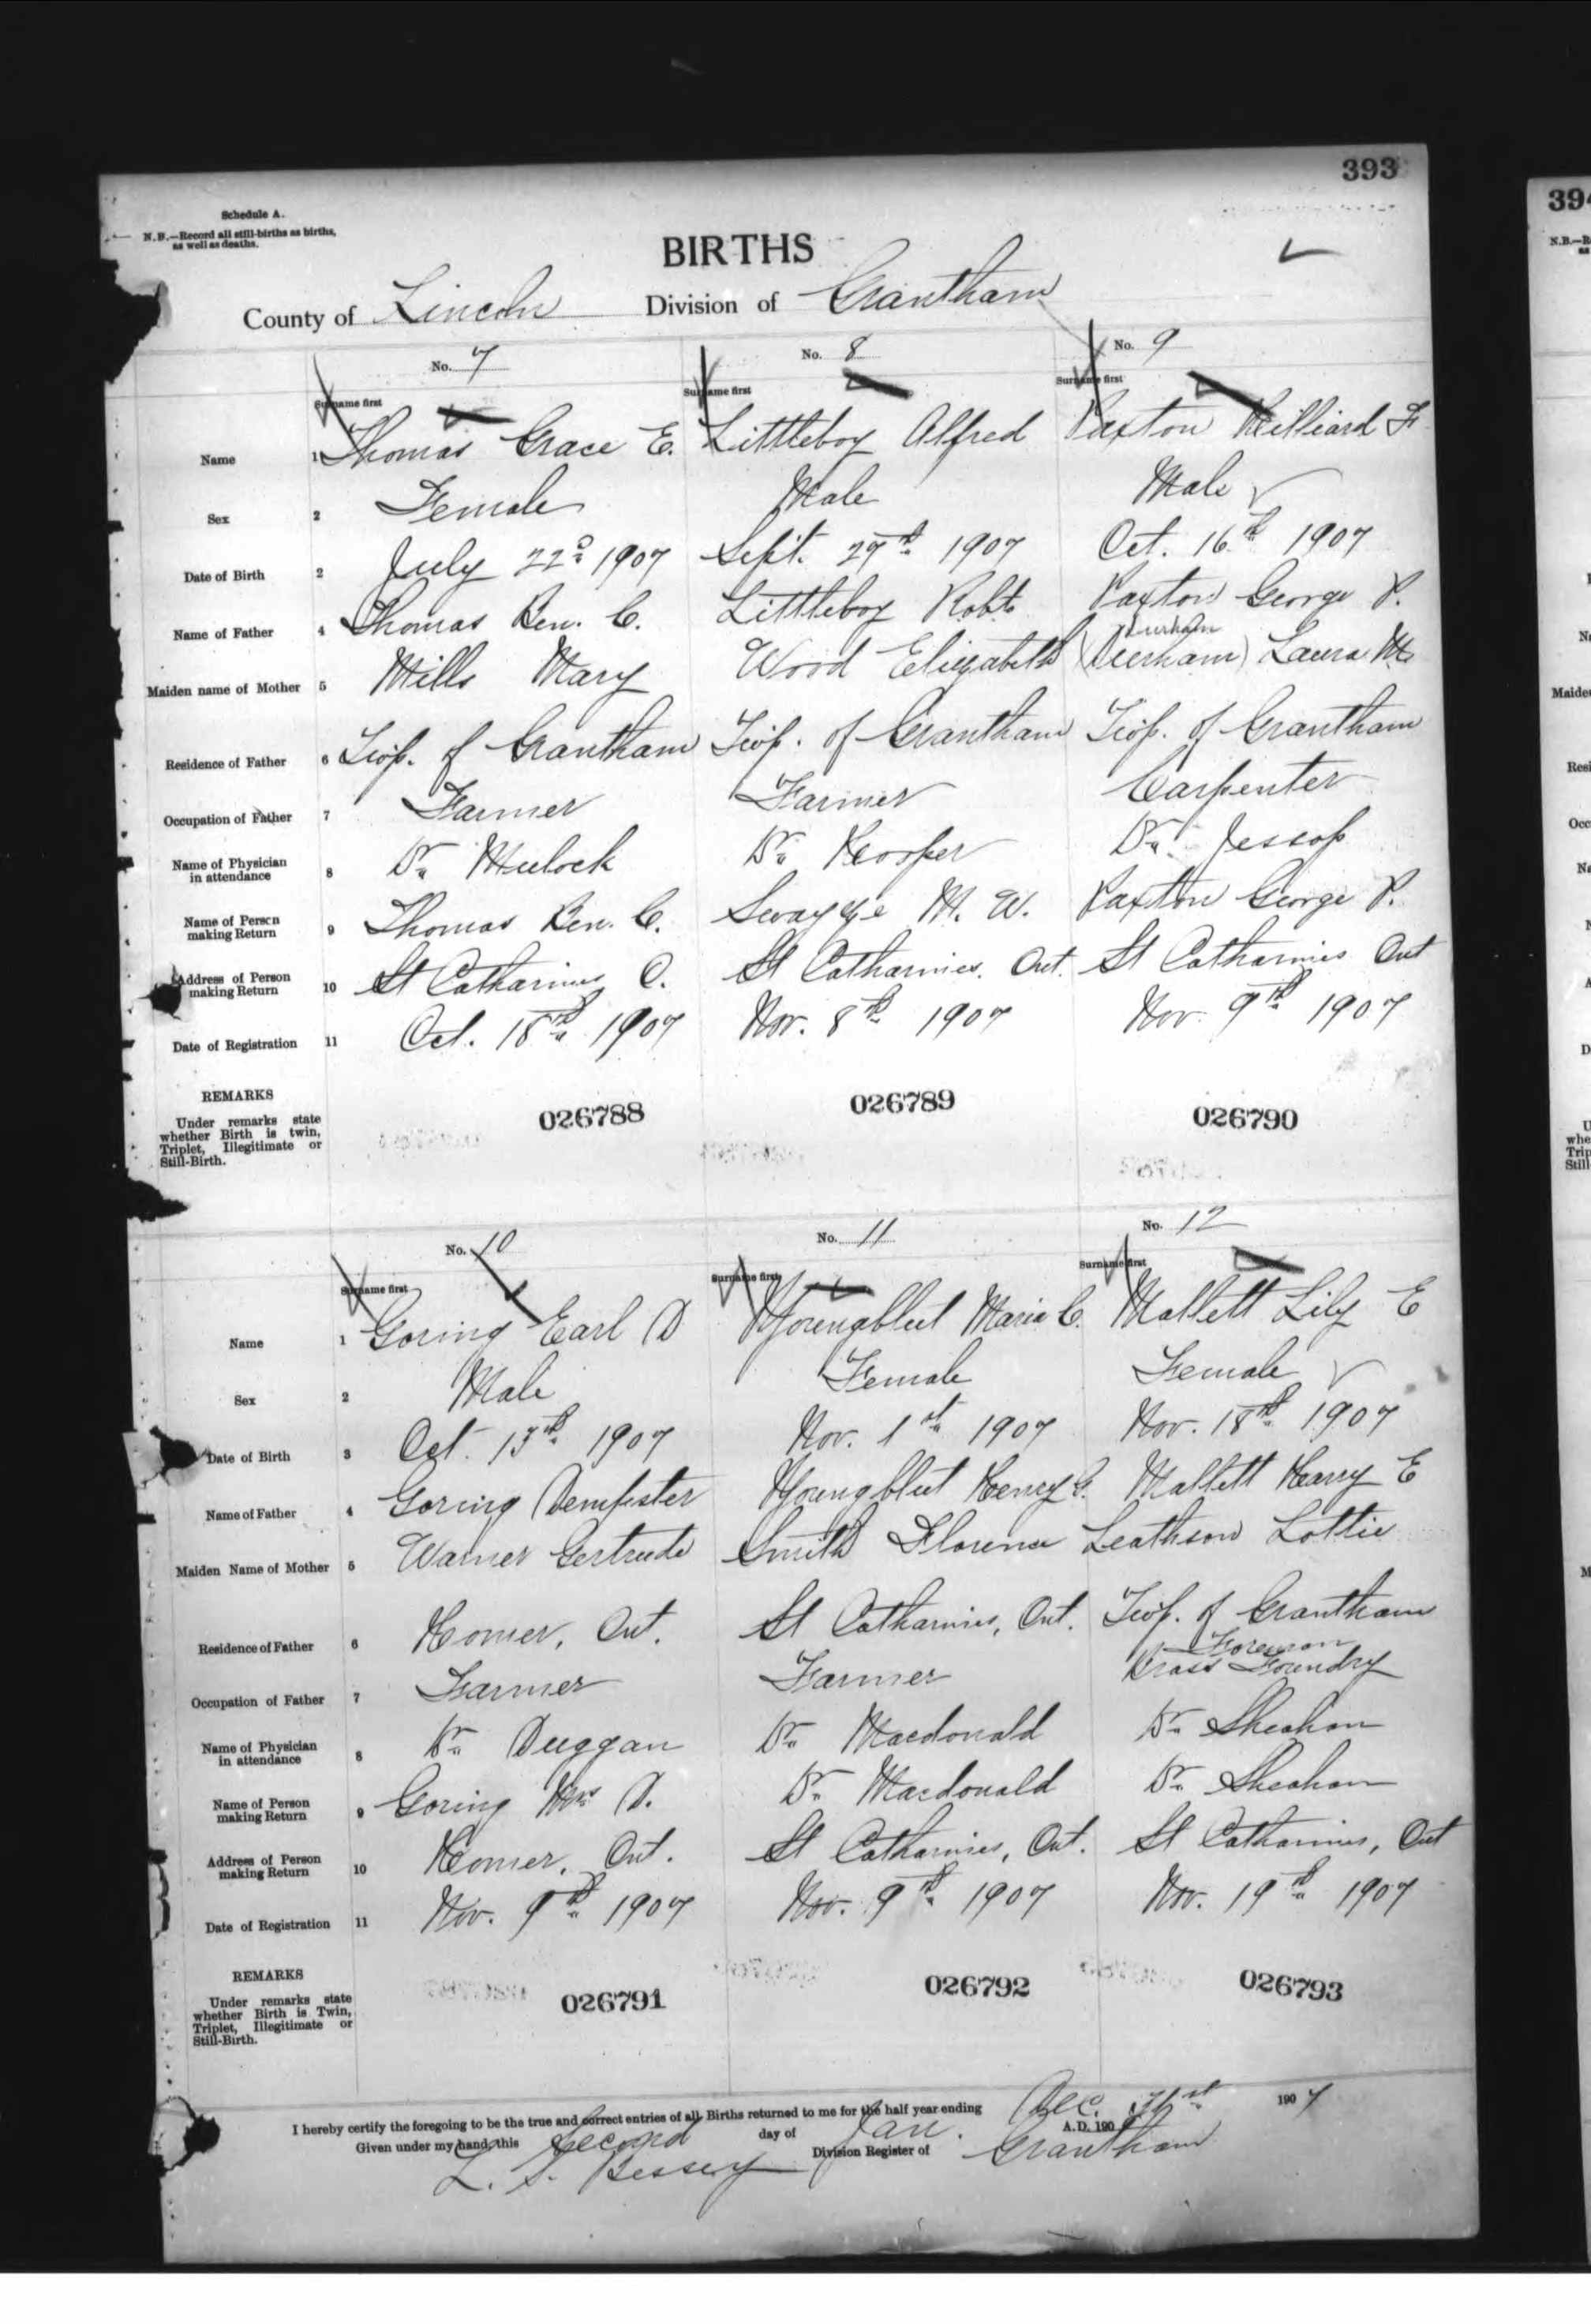 393
Schedule A.
N.B.—Record all still-births as births,
as well as deaths.
BIRTHS
County of Lincoln Division of Grantham
No. 7 No. 8 No. 9
Surname first Surname first Surname first
Name 1 Thomas Grace E. Littleboy Alfred Paxton Hilliard F
Sex 2 Female Male Male
Date of Birth 2 July 22nd 1907 Sept. 27th 1907 Oct. 16th 1907
Name of Father 4 Thomas Ben. C. Littleboy Robt. Paxton George P.
Durham
Maiden name of Mother 5 Mills Mary Wood Elizabeth (Durham) Laura M.
Residence of Father 6 Twp. of Grantham Twp. of Grantham Twp. of Grantham
Occupation of Father 7 Farmer Farmer Carpenter
Name of Physician
in attendance 8 Dr. Mulock Dr. Hooper Dr. Jessop
Name of Person
making Return 9 Thomas Ben. C. Swayze M. W. Paxton George P.
Address of Person
making Return 10 St Catharines O. St Catharines. Ont. St Catharines Ont
Date of Registration 11 Oct. 18th 1907 Nov. 8th 1907 Nov. 9th 1907
REMARKS
Under remarks state
whether Birth is twin,
Triplet, Illegitimate or
Still-Birth.
026788 026789 026790
No. 10 No. 11 No. 12
Surname first Surname first Surname first
Name 1 Goring Earl D Youngblut Maria C. Mallett Lily E
Sex 2 Male Female Female
Date of Birth 3 Oct. 13th 1907 Nov. 1st 1907 Nov. 18th 1907
Name of Father 4 Goring Dempster Youngblut Henry G. Mallett Harry E
Maiden Name of Mother 5 Warner Gertrude Smith Florence Leathson Lottie
Residence of Father 6 Homer, Ont. St Catharines, Ont. Twp. of Grantham
Foreman
Occupation of Father 7 Farmer Farmer Brass Foundry
Name of Physician
in attendance 8 Dr. Duggan Dr. Macdonald Dr. Sheahan
Name of Person
making Return 9 Goring Mrs D. Dr. Macdonald Dr. Sheahan
Address of Person
making Return 10 Homer, Ont. St Catharines, Ont. St Catharines, Ont
Date of Registration 11 Nov. 9th 1907 Nov. 9th 1907 Nov. 19th 1907
REMARKS
Under remarks state
whether Birth is Twin,
Triplet, Illegitimate or
Still-Birth.
026791 026792 026793
I hereby certify the foregoing to be the true and correct entries of all Births returned to me for the half year ending Dec. 31st 1907
Given under my hand, this Second day of Jan. A.D. 190
L. S. Bessey Division Register of Grantham
394